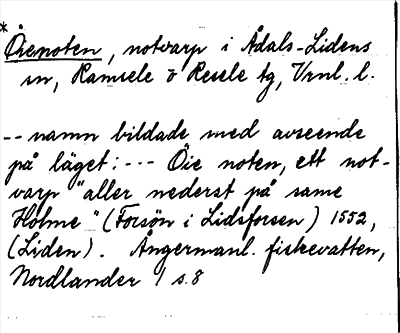 *
Öienoten, notvarp i Ådals-Lidens
sn, Ramsele o Resele tg, Vrnl. l.
-- namn bildade med avseende
på läget: --- Öie noten, ett not-
varp "aller nederst på same
Holme" (Forsön i Lidsforsen) 1552,
(Liden). Ångermanl. fiskevatten,
Nordlander 1 s. 8